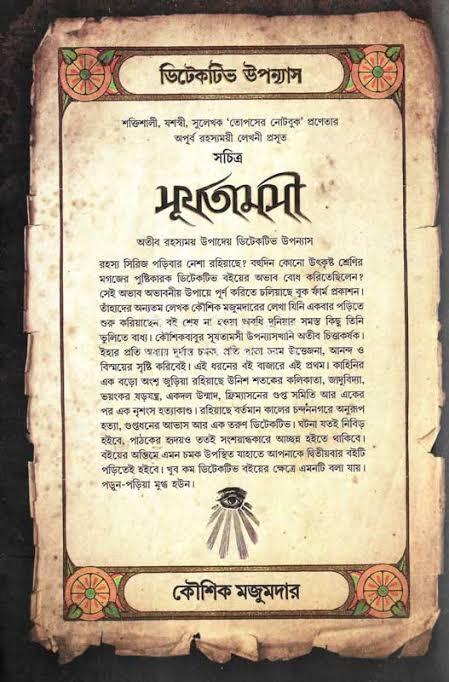 ডিটেকটিভ উপন্যাস
শক্তিশালী, যশস্বী, সুলেখক 'তোপসের নোটবুক' প্রণেতার
অপূর্ব রহস্যময়ী লেখনী প্রসূত
সচিত্র
সূর্যতামসী
অতীব রহস্যময় উপাদেয় ডিটেকটিভ উপন্যাস
রহস্য সিরিজ পড়িবার নেশা রহিয়াছে? বহুদিন কোনো উৎকৃষ্ট শ্রেণির
মগজের পুষ্টিকারক ডিটেকটিভ বইয়ের অভাব বোধ করিতেছিলেন?
সেই অভাব অভাবনীয় উপায়ে পূর্ণ করিতে চলিয়াছে বুক ফার্ম প্রকাশন।
তাঁহাদের অন্যতম লেখক কৌশিক মজুমদারের লেখা যিনি একবার পড়িতে
শুরু করিয়াছেন, বই শেষ না হওয়া অবধি দুনিয়ার সমস্ত কিছু তিনি
ভুলিতে বাধ্য। কৌশিকবাবুর সূর্যতামসী উপন্যাসখানি অতীব চিত্তাকর্ষক।
ইহার প্রতি অধ্যায় দুর্দান্ত চমক, প্রতি পাতা উত্তেজনা, আনন্দ ও
বিস্ময়ের সৃষ্টি করিবেই। এই ধরনের বই বাজারে এই প্রথম। কাহিনির
এক বড়ো অংশ জুড়িয়া রহিয়াছে উনিশ শতকের কলিকাতা, জাদুবিদ্যা,
ভয়ংকর ষড়যন্ত্র, একদল উন্মাদ, ফ্রিম্যাসনের গুপ্ত সমিতি আর একের
পর এক নৃশংস হত্যাকাণ্ড। রহিয়াছে বর্তমান কালের চন্দননগরে অনুরূপ
হত্যা, গুপ্তধনের আভাস আর এক তরুণ ডিটেকটিভ। ঘটনা যতই নিবিড়
হইবে, পাঠকের হৃদয়ও ততই সংশয়ান্ধকারে আচ্ছন্ন হইতে থাকিবে।
বইয়ের অন্তিমে এমন চমক উপস্থিত যাহাতে আপনাকে দ্বিতীয়বার বইটি
পড়িতেই হইবে। খুব কম ডিটেকটিভ বইয়ের ক্ষেত্রে এমনটি বলা যায়।
পড়ুন-পড়িয়া মুগ্ধ হউন।
কৌশিক মজুমদার